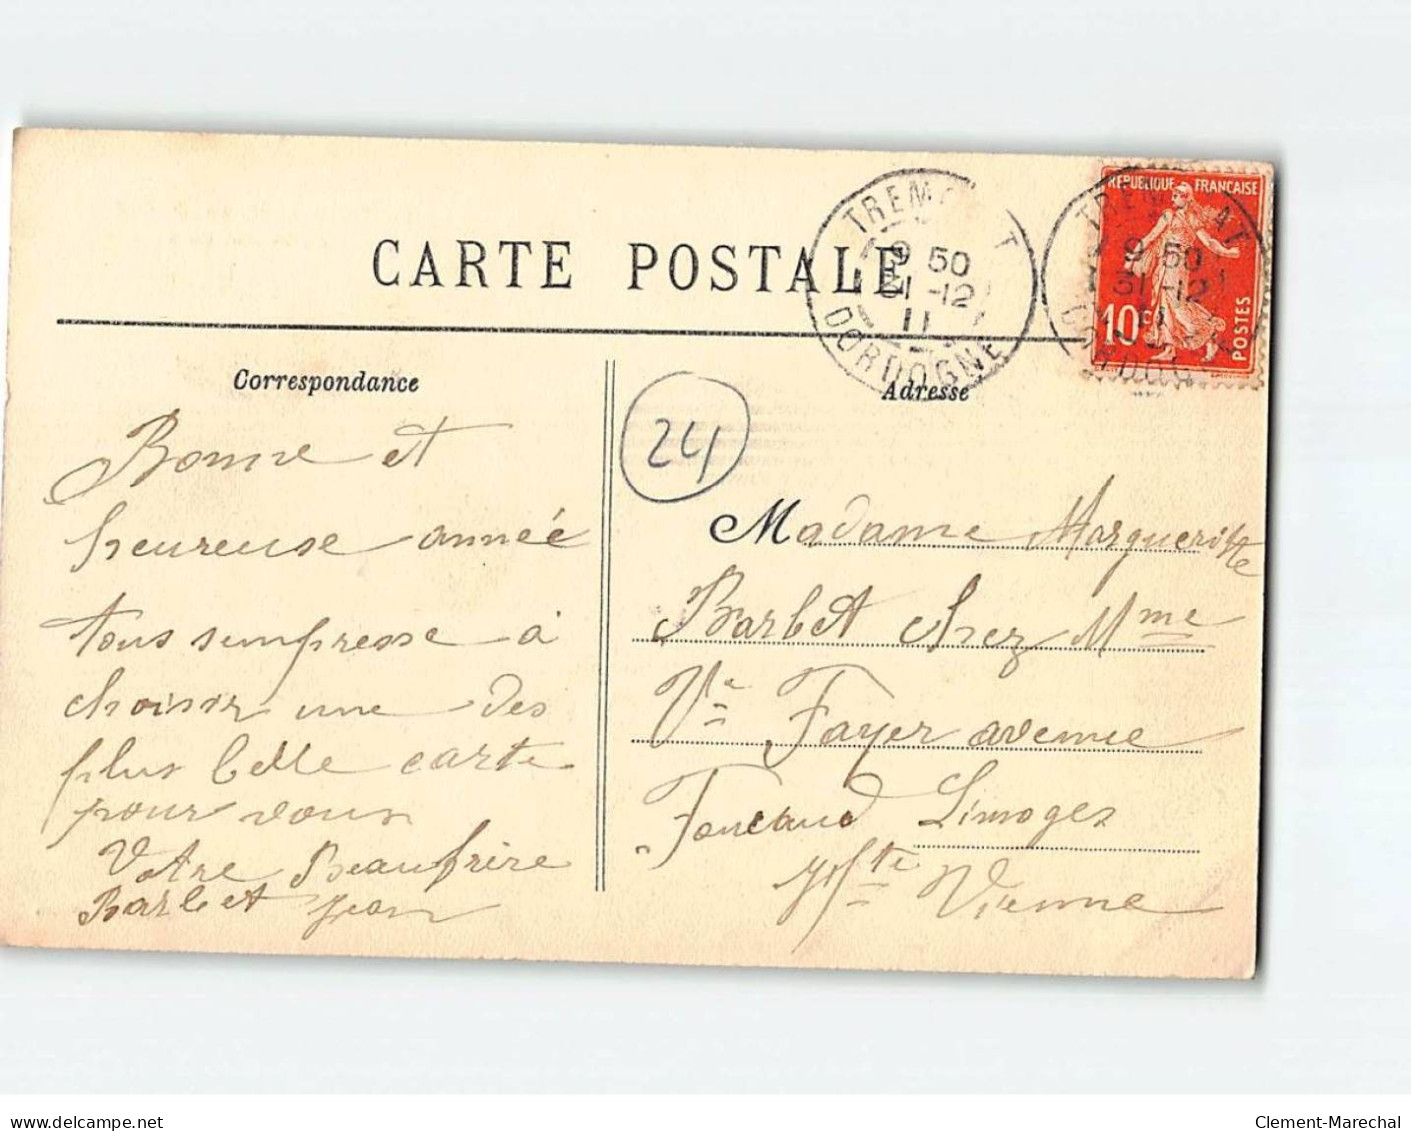 CARTE POSTALE
TREMOLAT
9 50
31 -12
11
DORDOGNE
TREMOLAT
9 50
31 -12
11
DORDOGNE
REPUBLIQUE FRANÇAISE
10c
POSTES
Correspondance
Bonne et
heureuse année
tous sempresse à
choisir une des
plus belle carte
pour vous
Votre Beaufrère
Barbet Jean
24
Adresse
Madame Marguerite
Barbet chez Mme
Ve Fayer avenue
Foucaud Limoges
Hte Vienne
delcampe.net
Clement-Marechal